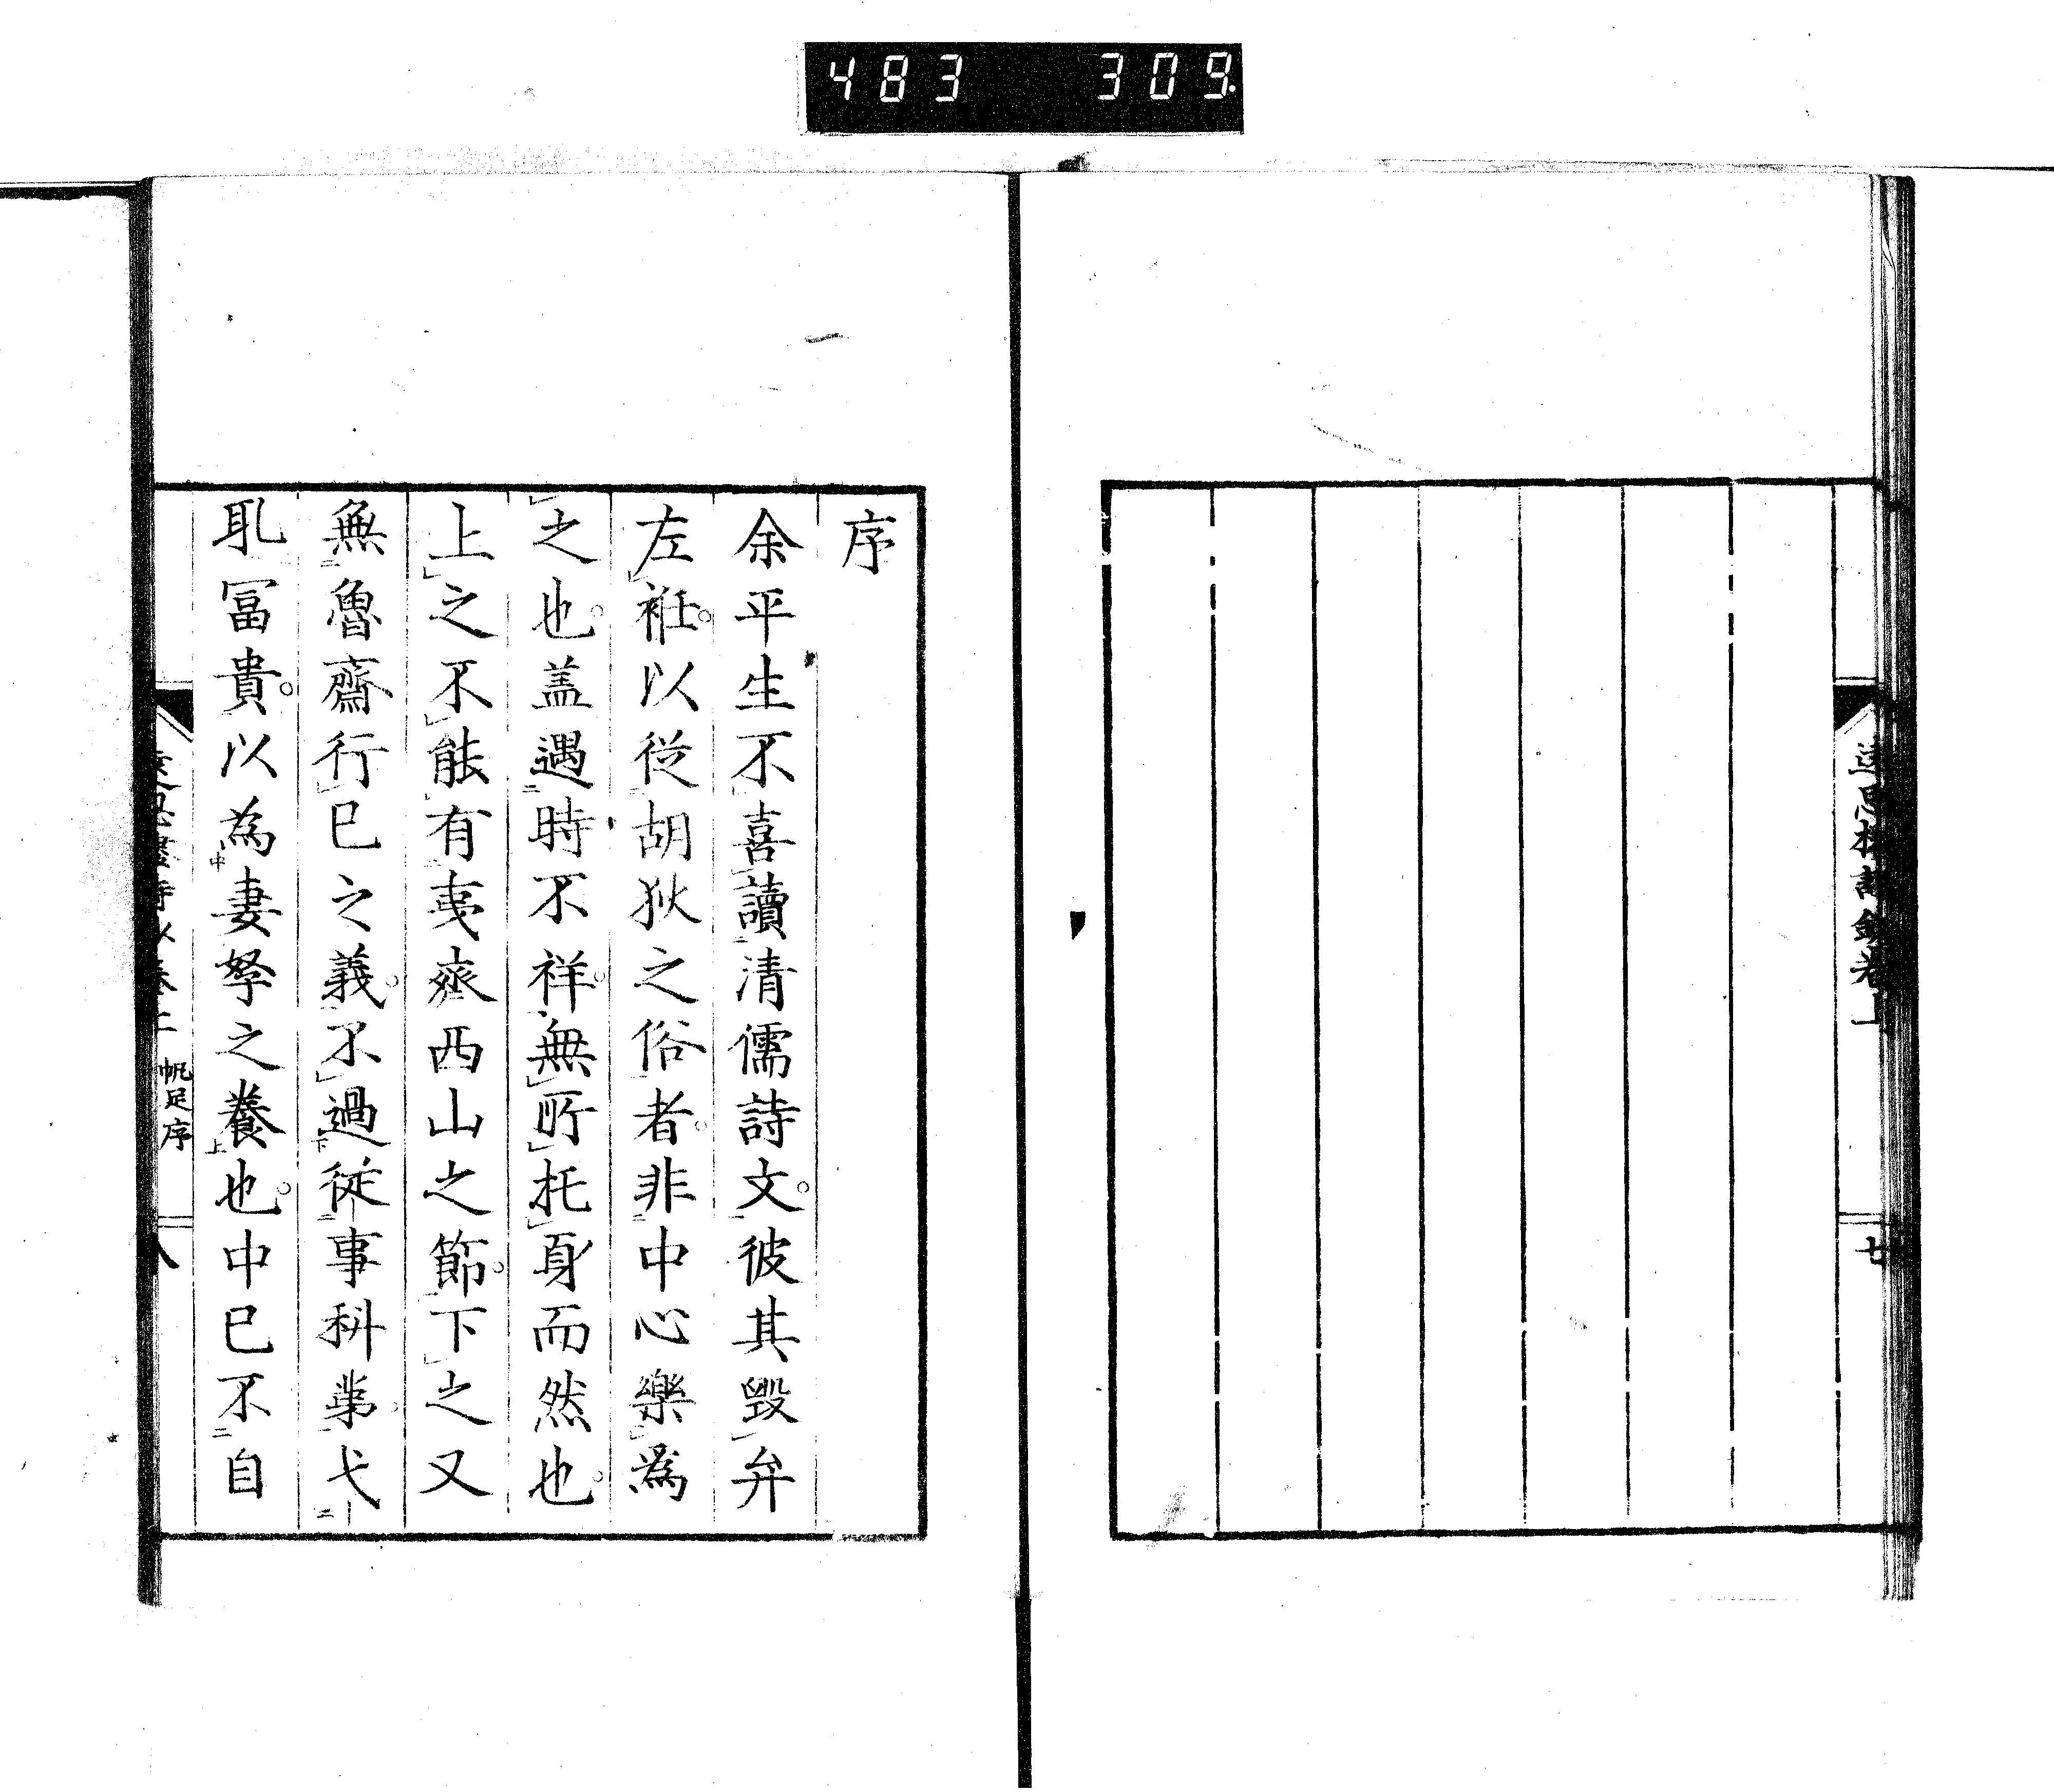 483 309
七
序
余平生不喜讀清儒詩文。彼其毀弁
左衽。以從胡狄之俗者。非中心樂為
之也。盖遇時不祥。無所托身而然也。
上之不能有夷齊西山之節。下之又
無魯齋行已之義。不過從事科第。弋
取冨貴。以為妻孥之養也。中已不自
帆足序
八